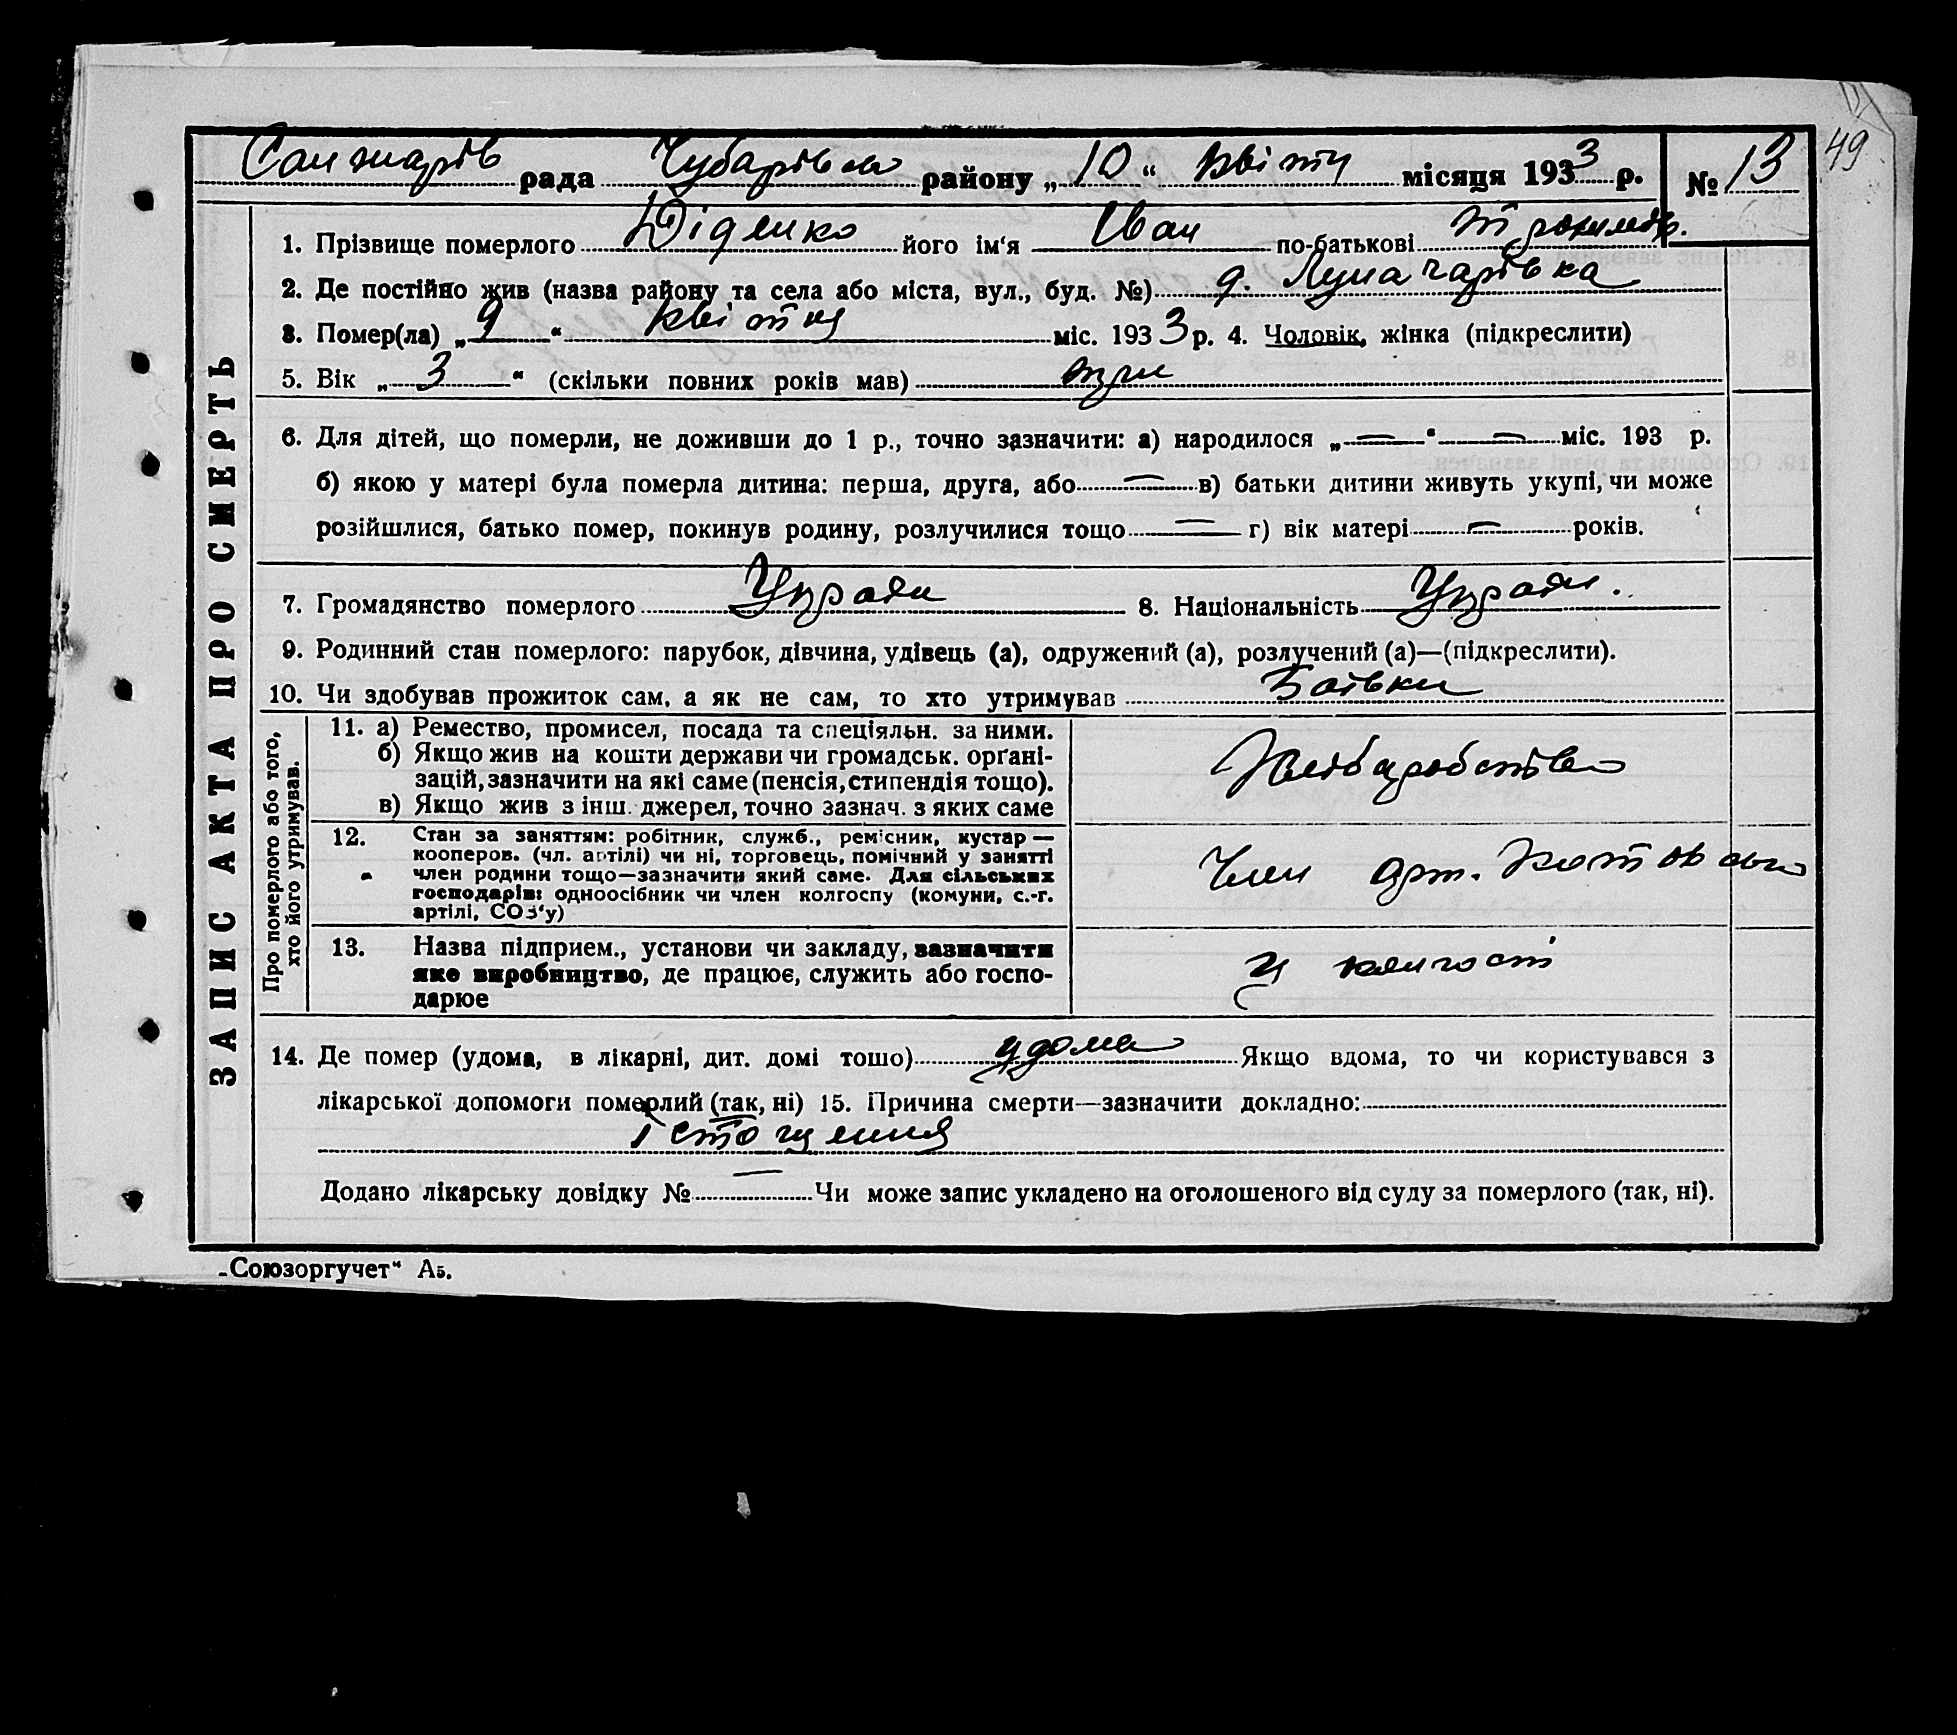 49
Санжарів рада Чубарівка району „10“ Квітн місяця 1933 р. № 13
ЗАПИС АКТА ПРО СМЕРТЬ
1. Прізвище померлого Діденко його ім‘я Іван по-батькові
2. Де постійно жив (назва району та села або міста, вул., буд. №) д. Луначарівка
3. Помер(ла) „9“ квітня міс. 1933 р. 4. Чоловік, жінка (підкреслити)
5. Вік „3“ (скільки повних років мав) три
6. Для дітей, що померли, не доживши до 1 р., точно зазначити: а) народилося „—“ — міс. 193 р.
б) якою у матері була померла дитина: перша, друга, або — в) батьки дитини живуть укупі, чи може
розійшлися, батько помер, покинув родину, розлучилися тощо — г) вік матері — років.
7. Громадянство померлого Украін 8. Національність Украін.
9. Родинний стан померлого: парубок, дівчина, удівець (а), одружений (а), розлучений (а)—(підкреслити).
10. Чи здобував прожиток сам, а як не сам, то хто утримував Батьки
Про померлого або того,
хто його утримував.
11. а) Ремество, промисел, посада та спеціяльн. за ними.
б) Якщо жив на кошти держави чи громадськ. орґані-
зацій, зазначити на які саме (пенсія, стипендія тощо).
в) Якщо жив з інш. джерел, точно зазнач. з яких саме
Хлібуробство
12. Стан за заняттям: робітник, служб., ремісник, кустар —
кооперов. (чл. артілі) чи ні, торговець, помічний у занятті
член родини тощо—зазначити який саме. Для сільських
господарів: одноосібник чи член колгоспу (комуни, с.-г.
артілі, СОЗ‘у)
Член арт.
13. Назва підприєм., установи чи закладу, зазначити
яке виробництво, де працює, служить або госпо-
дарюе
у
14. Де помер (удома, в лікарні, дит. домі тошо) удома Якщо вдома, то чи користувався з
лікарської допомоги померлий (так, ні) 15. Причина смерти—зазначити докладно:
істощення
Додано лікарську довідку № — Чи може запис укладено на оголошеного від суду за померлого (так, ні).
„Союзоргучет“ А5.